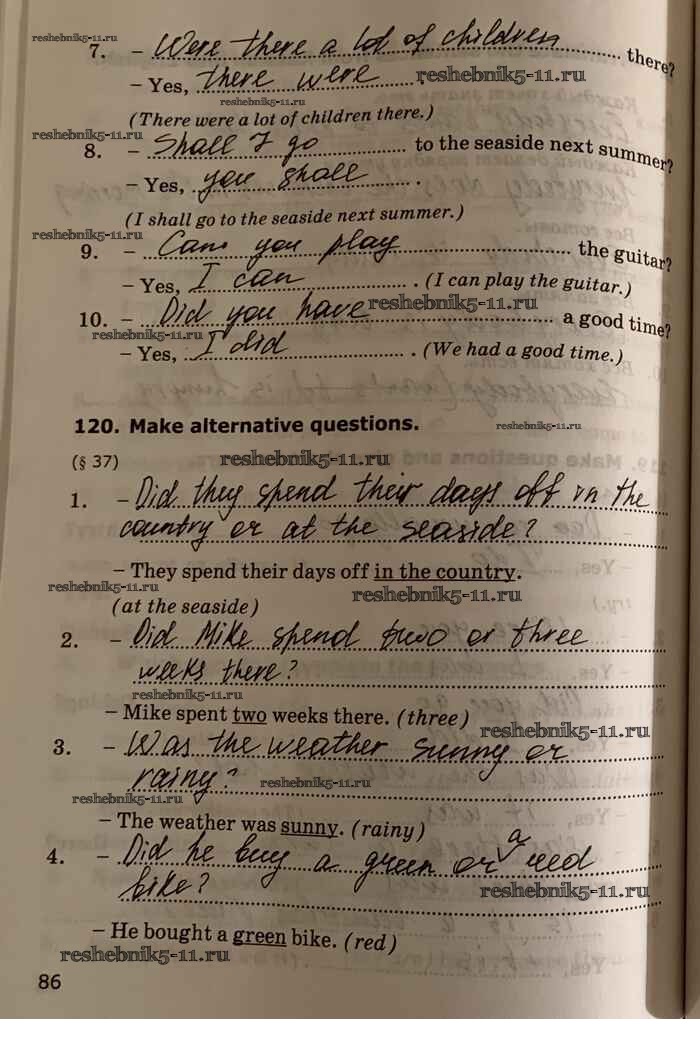 reshebnik5-11.ru
7. – Were there a lot of children there?
– Yes, there were. reshebnik5-11.ru
reshebnik5-11.ru
(There were a lot of children there.)
reshebnik5-11.ru
8. – Shall I go to the seaside next summer?
– Yes, you shall.
(I shall go to the seaside next summer.)
reshebnik5-11.ru
9. – Can you play the guitar?
– Yes, I can. (I can play the guitar.)
reshebnik5-11.ru
10. – Did you have a good time?
reshebnik5-11.ru
– Yes, I did. (We had a good time.)
120. Make alternative questions.
reshebnik5-11.ru
(§ 37) reshebnik5-11.ru
1. – Did they spend their days off in the
country or at the seaside?
– They spend their days off in the country.
reshebnik5-11.ru reshebnik5-11.ru
(at the seaside)
2. – Did Mike spend two or three
weeks there?
reshebnik5-11.ru
– Mike spent two weeks there. (three)
reshebnik5-11.ru
3. – Was the weather sunny or
rainy? reshebnik5-11.ru
reshebnik5-11.ru
– The weather was sunny. (rainy)
4. – Did he buy a green or a red
bike? reshebnik5-11.ru
– He bought a green bike. (red)
reshebnik5-11.ru
86